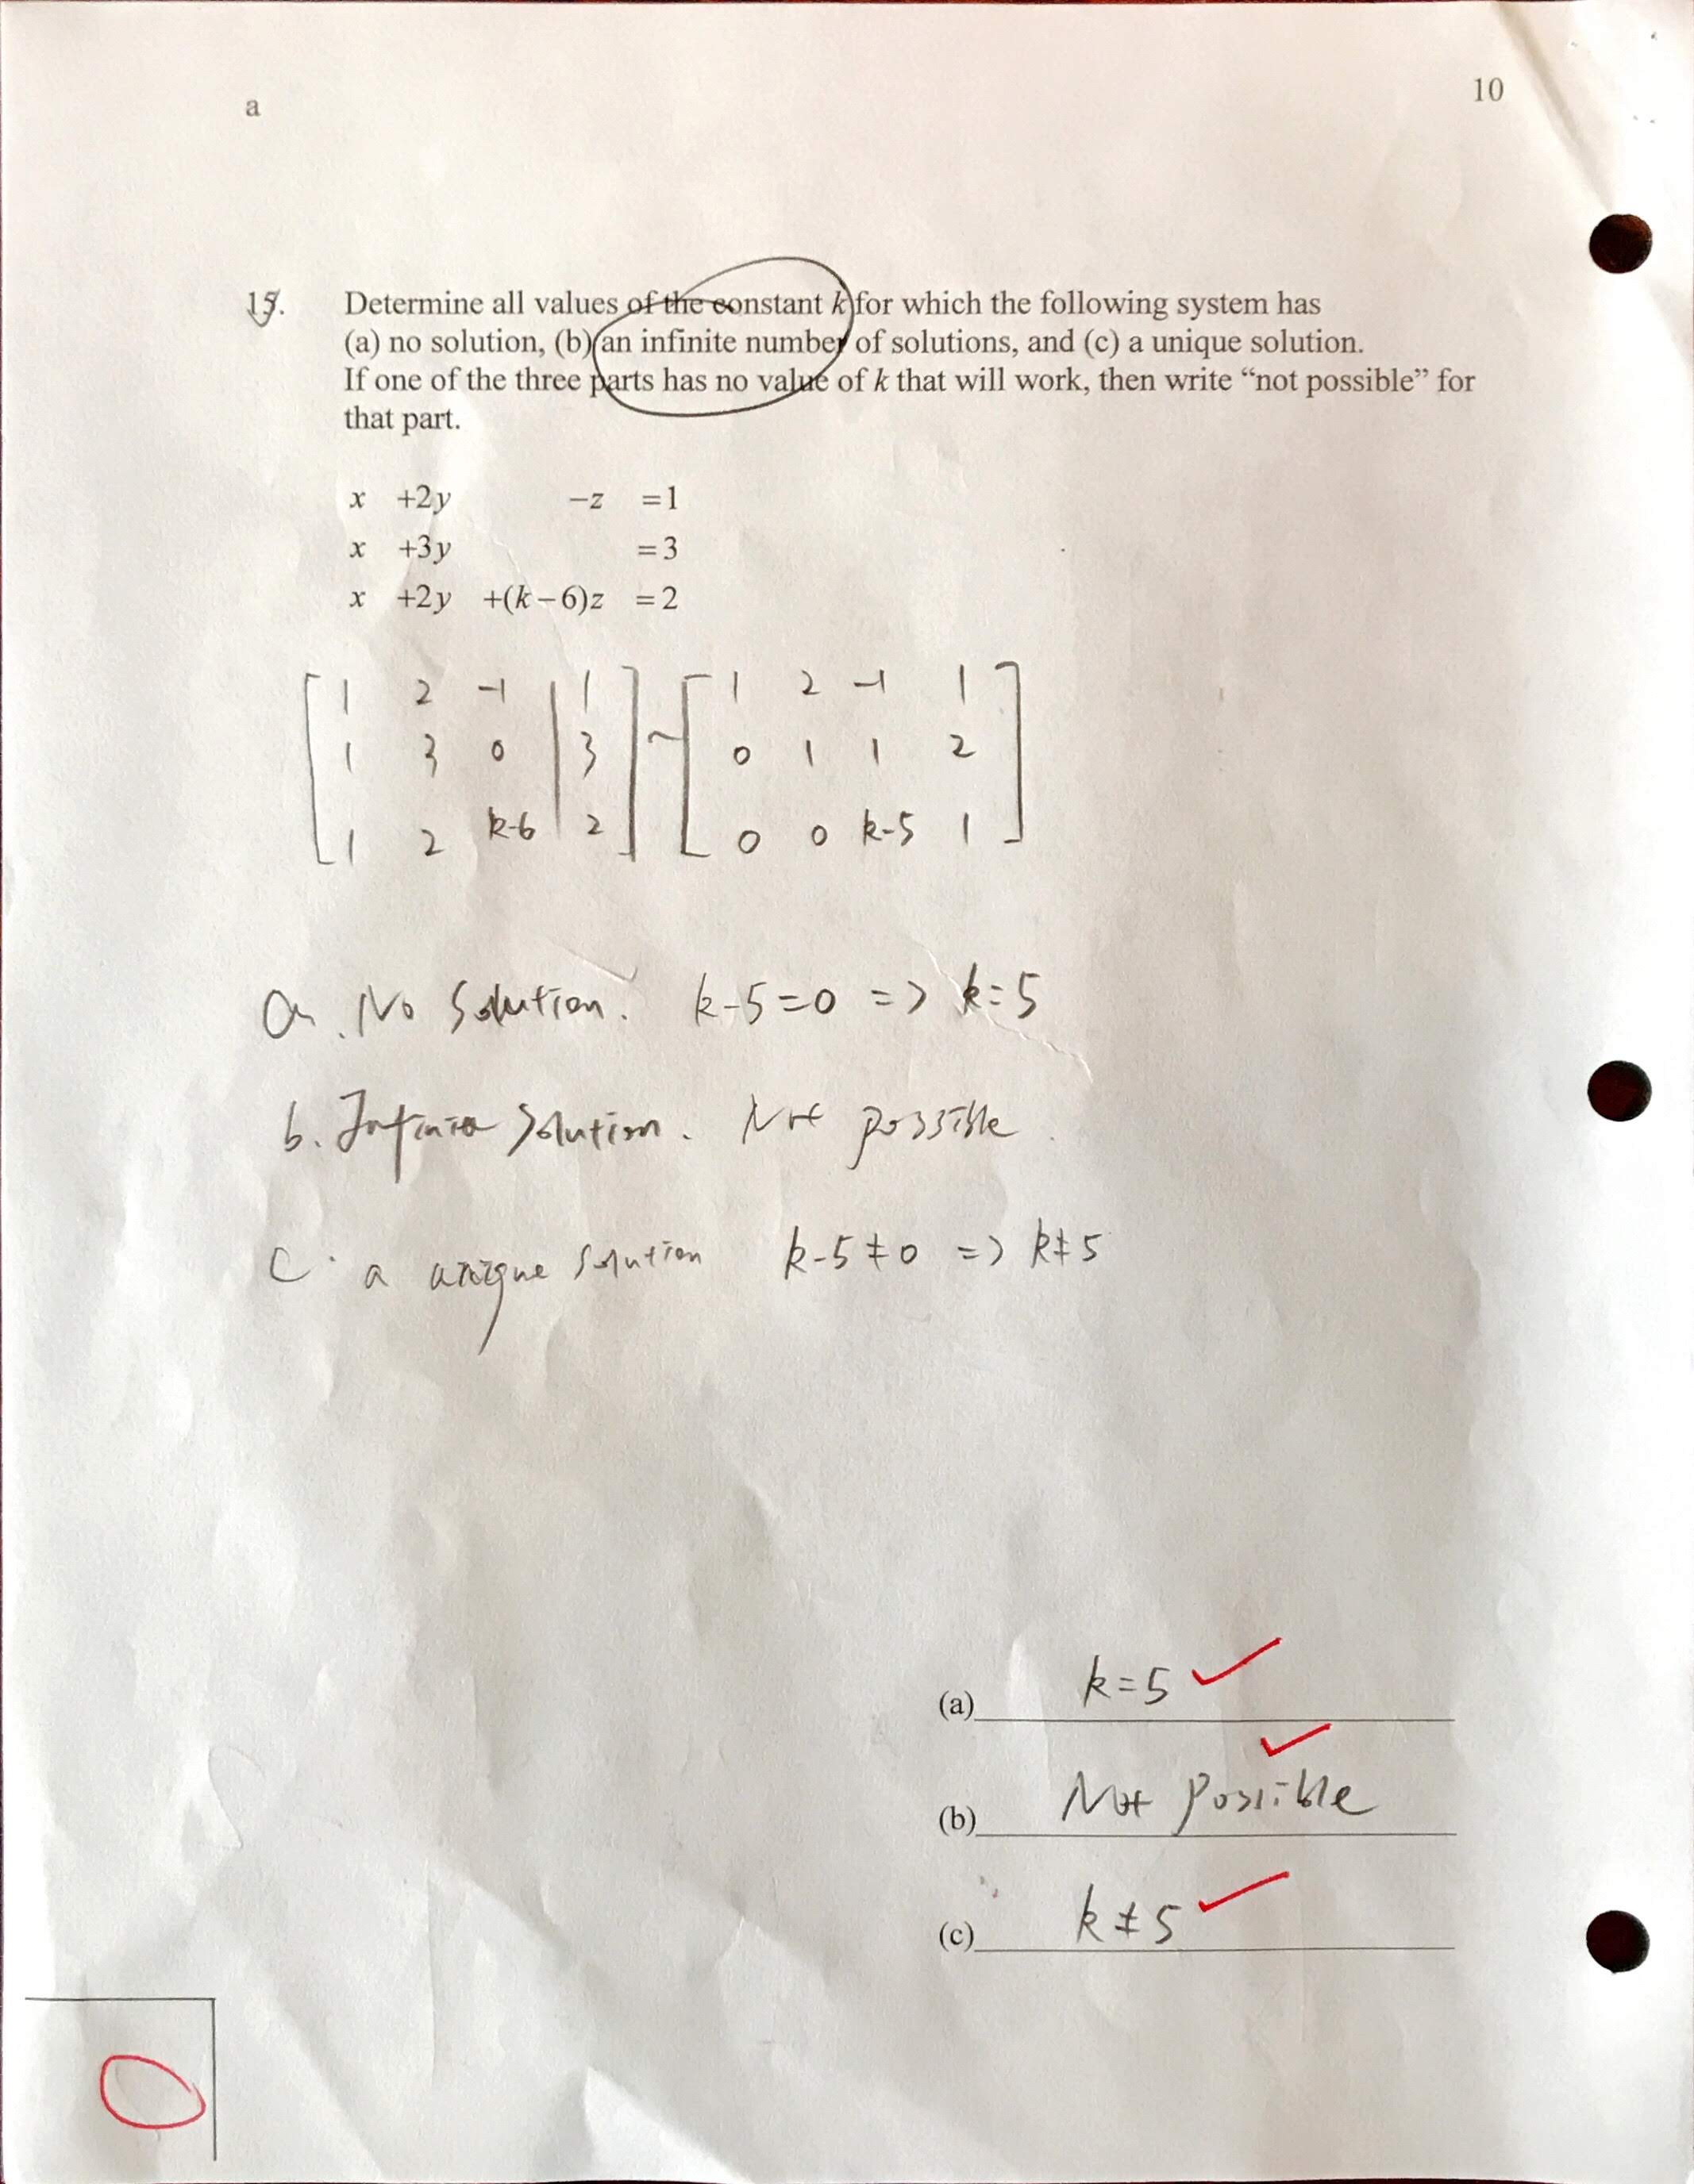 a
10
15. Determine all values of the constant k for which the following system has
(a) no solution, (b) an infinite number of solutions, and (c) a unique solution.
If one of the three parts has no value of k that will work, then write “not possible” for
that part.
x +2y −z =1
x +3y =3
x +2y +(k−6)z =2
[1 2 -1 | 1] ~ [1 2 -1 1]
[1 3 0 | 3] [0 1 1 2]
[1 2 k-6 | 2] [0 0 k-5 1]
a. No Solution. k-5=0 => k=5
b. Infinite Solution. Not possible.
C. a unique solution k-5≠0 => k≠5
(a) k=5 ✓
(b) Not Possible ✓
(c) k≠5 ✓
0